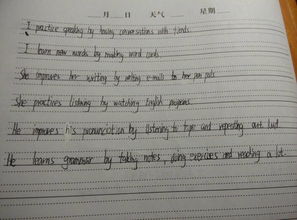 月 日 天气 星期
I practice speaking by having conversations with friends.
I learn new words by making word cards.
She improves her writing by writing e-mails to her pen pals
She practices listening by watching English programs.
He improves his pronunciation by listening to tape and repeating out loud.
He learns grammar by taking notes, doing exercises and reading a lot.